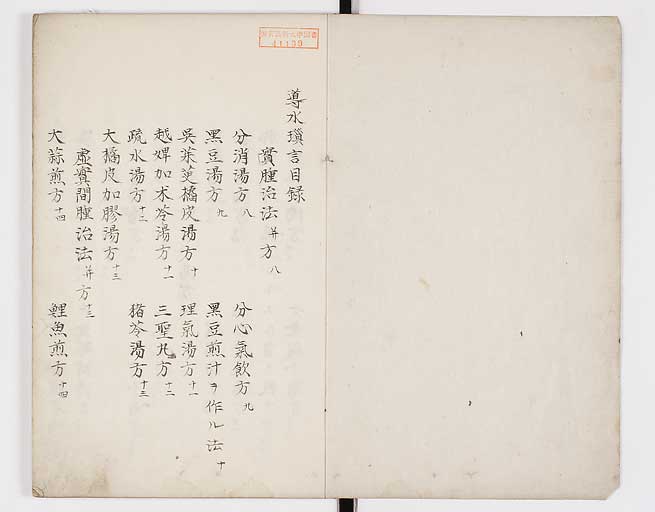 導水瑣言目録
實腫治法 并方 八
分消湯方 八 分心氣飲方 九
黒豆湯方 九 黒豆煎汁ヲ作ル法 十
呉茱萸橘皮湯方 十 理氣湯方 十一
越婢加朮苓湯方 十一 三聖丸方 十二
疏水湯方 十二 猪苓湯方 十三
大橘皮加膠湯方 十三
虚實間腫治法 并方 十三
大蒜煎方 十四 鯉魚煎方 十四
41139